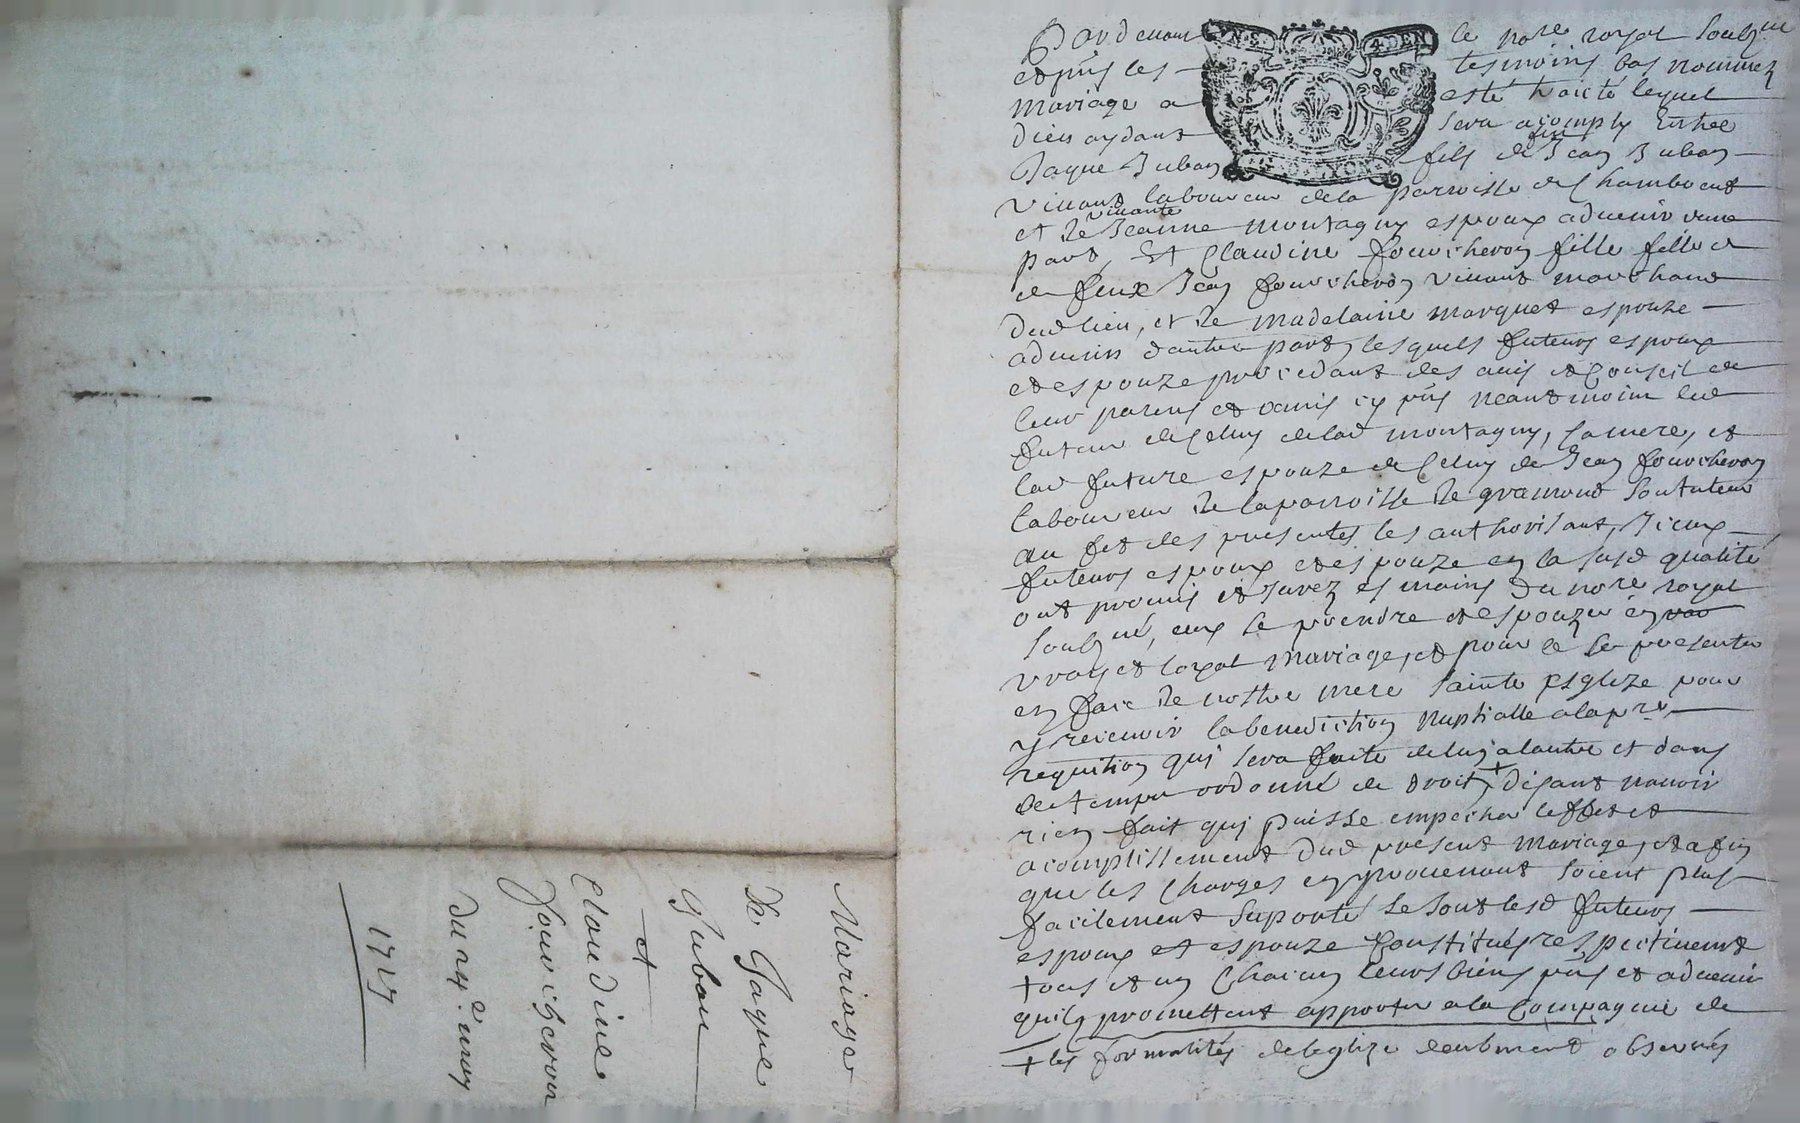 Mariage
de Jaque
Juban
et
Claudine
fourcheron
du 24e may
1727
Pardevant le notre royal soubzne
et pnts les tesmoins bas nommez
mariage a esté traicté lequel
dieu aydant sera acomply Entre
Jaque Juban fils de feu Jean Juban
vivant laboureur dela parroisse de Chambout
et de vivante Jeanne montagny espoux advenir dune
part, Et Claudine fourcheron fille fille de
de feux Jean fourcheron vivant marchand
dud lieu, et de madelaine marquet espouze
advenir dautre part, lesquels futeurs espoux
et espouze procedant des avis et Conseil de
leur parens et amis cy pnts neantmoins led
futeur de Celuy de lad montagny, sa mere, et
lad future espouze de Celuy de Jean fourcheron
laboureur de la parroisse de gramond son tuteur
au fet des presentes les authorisant, Iceux
futeurs espoux et espouze en la susd qualité
ont promis et jurez es mains du notre royal
soubzné, eux se prendre et espouzer en
vray et loyal mariage, et pour ce se presenter
en face de nostre mere sainte Esglize pour
y recevoir la benediction nuptialle a la pre
requition quj sera faite de lun a lautre et dans
le temps ordonné de droit + disant navoir
rien fait quj puisse empecher leffet et
acomplissement dud present mariage, et afin
que les Charges en provenant soient plus
facilement suporté se sont lesd futeurs
espoux et espouze Constitués respectivemt
tous et un Chacun leurs biens pnts et advenir
quils promettent apporter a la Compagnie de
+ les formalités de leglize deubment observés